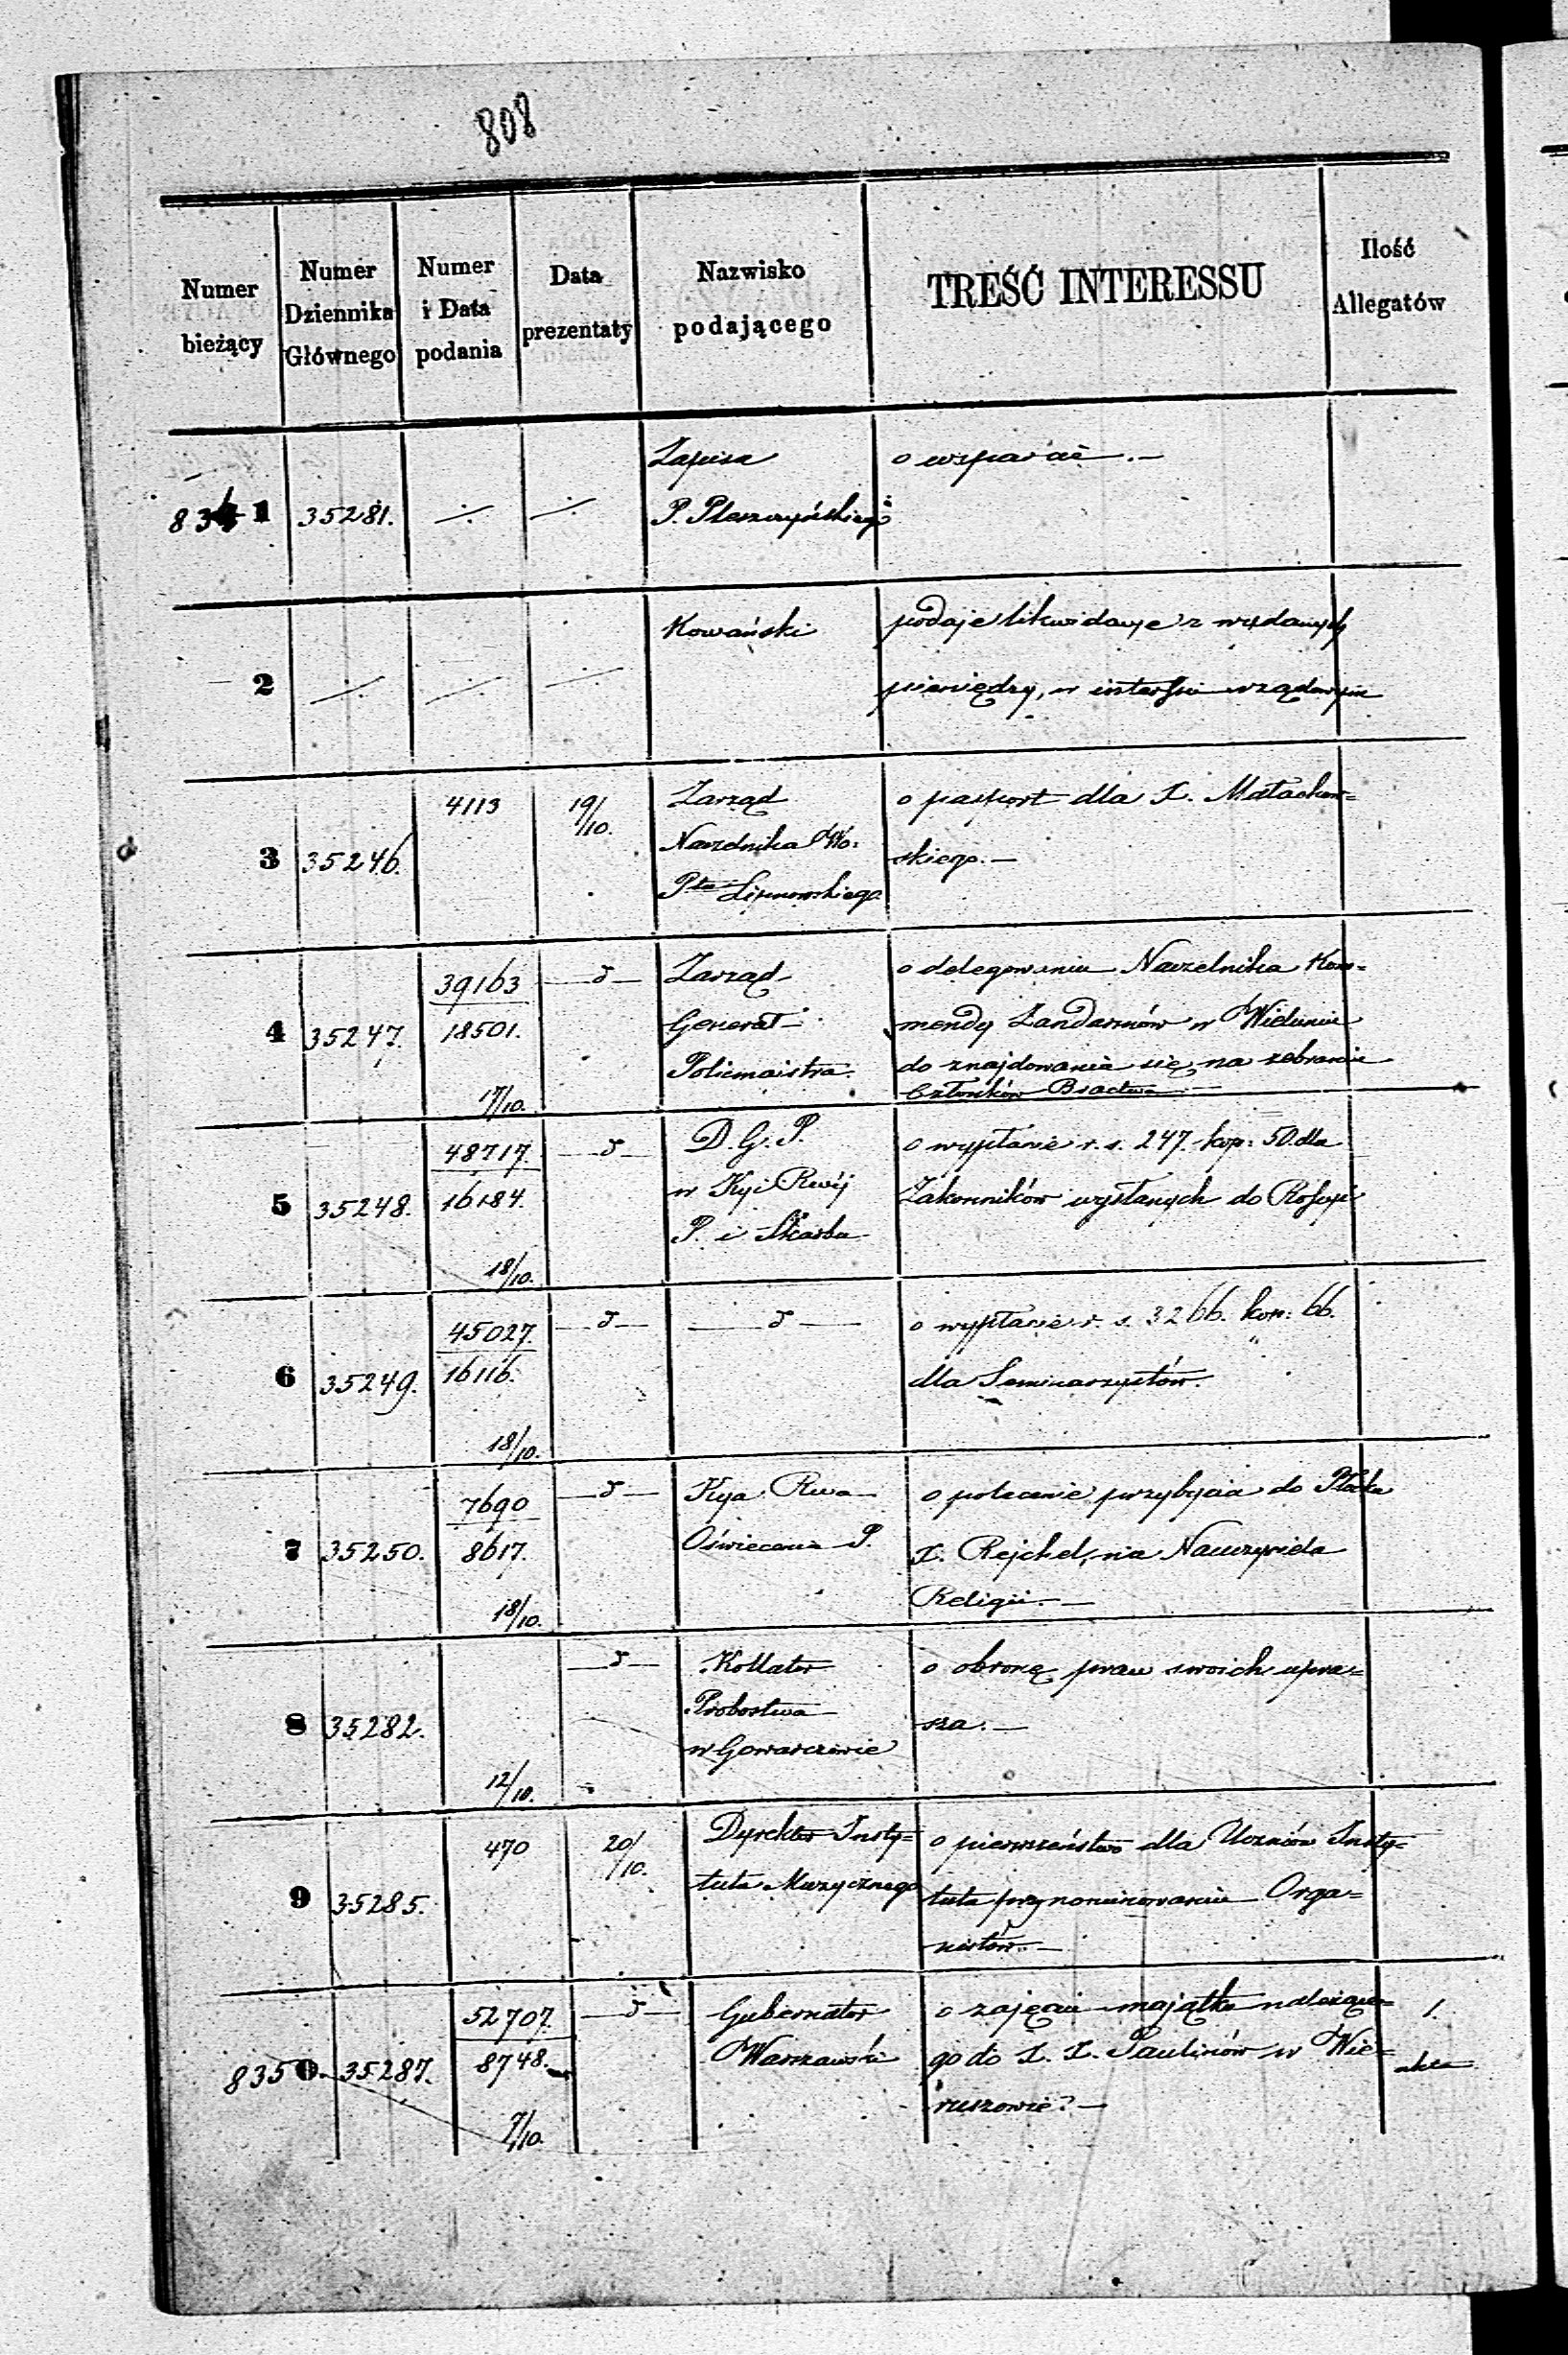 808
Numer bieżący
Numer Dziennika Głównego
Numer i Data podania
Data prezentaty
Nazwisko podającego
TREŚĆ INTERESSU
Ilość Allegatów
8341 35281. ·/· ·/· Zapisa o wsparcie.—
P. Pleszczyńskiego
2 ·/· ·/· ·/· Kowański podaje likwidacye z wydanych
pieniędzy, w interessie urzędowym
3 35246. 4113 19/10. Zarząd o paszport dla X. Małachow=
Naczelnika Wo: skiego.—
Pta Lipnowskiego
4 35247. 39163 —d— Zarząd o delegowaniu Naczelnika Kom=
18501. Generał mendy Żandarmów w Wieluniu
17/10. Policmaistra. do znajdowania się, na zebranie
Członków Bractwa
5 35248. 48717. —d— D. G. P. o wypłanie r. s. 247. kop: 50. dla
16184. w Kyi Rwéj Zakonników wysłanych do Rossyi
18/10. P. i Skarbu
6 35249. 45027. —d— —d— o wypłanie r. s. 3266. kop: 66.
16116. dla Seminarzystów.
18/10.
7 35250. 7690 —d— Kya Rwa o polecenie przybycia do Płocka
8617. Oświecenia P. X. Rejchel, na Nauczyciela
18/10. Religii.—
8 35282. —d— Kollator o obronę praw swoich upra=
Probostwa sza.—
12/10. w Gowarczowie
9 35285. 470 20/10. Dyrektor Insty= o pierwszeństwo dla Uczniów Insty=
tutu Muzycznego tutu przy nominowaniu Orga=
nistów.—
8350. 35287. 52707. —d— Gubernator o zajęciu majątku należące= 1.
8748. Warszawski go do X. X. Paulinów w Wie= akta
7/10. ruszowie.—